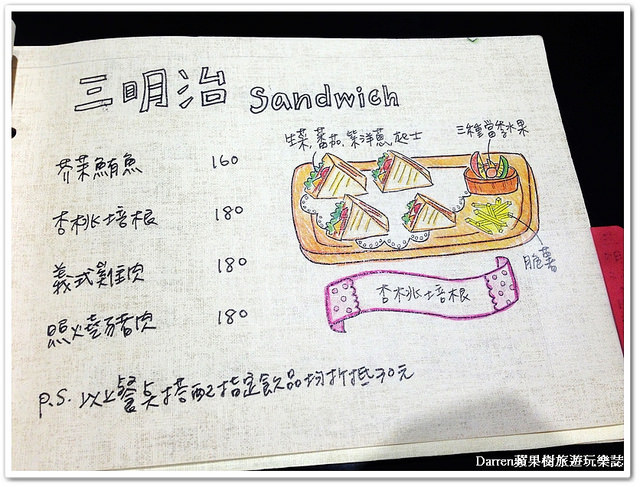 三明治 Sandwich
芥茉鮪魚 160
杏桃培根 180
義式雞肉 180
照燒豬肉 180
p.s. 以上餐桌搭配指定飲品均折抵30元
生菜,蕃茄,紫洋蔥,起士
三種當季水果
脆薯
杏桃培根
Darren蘋果樹旅遊玩樂誌